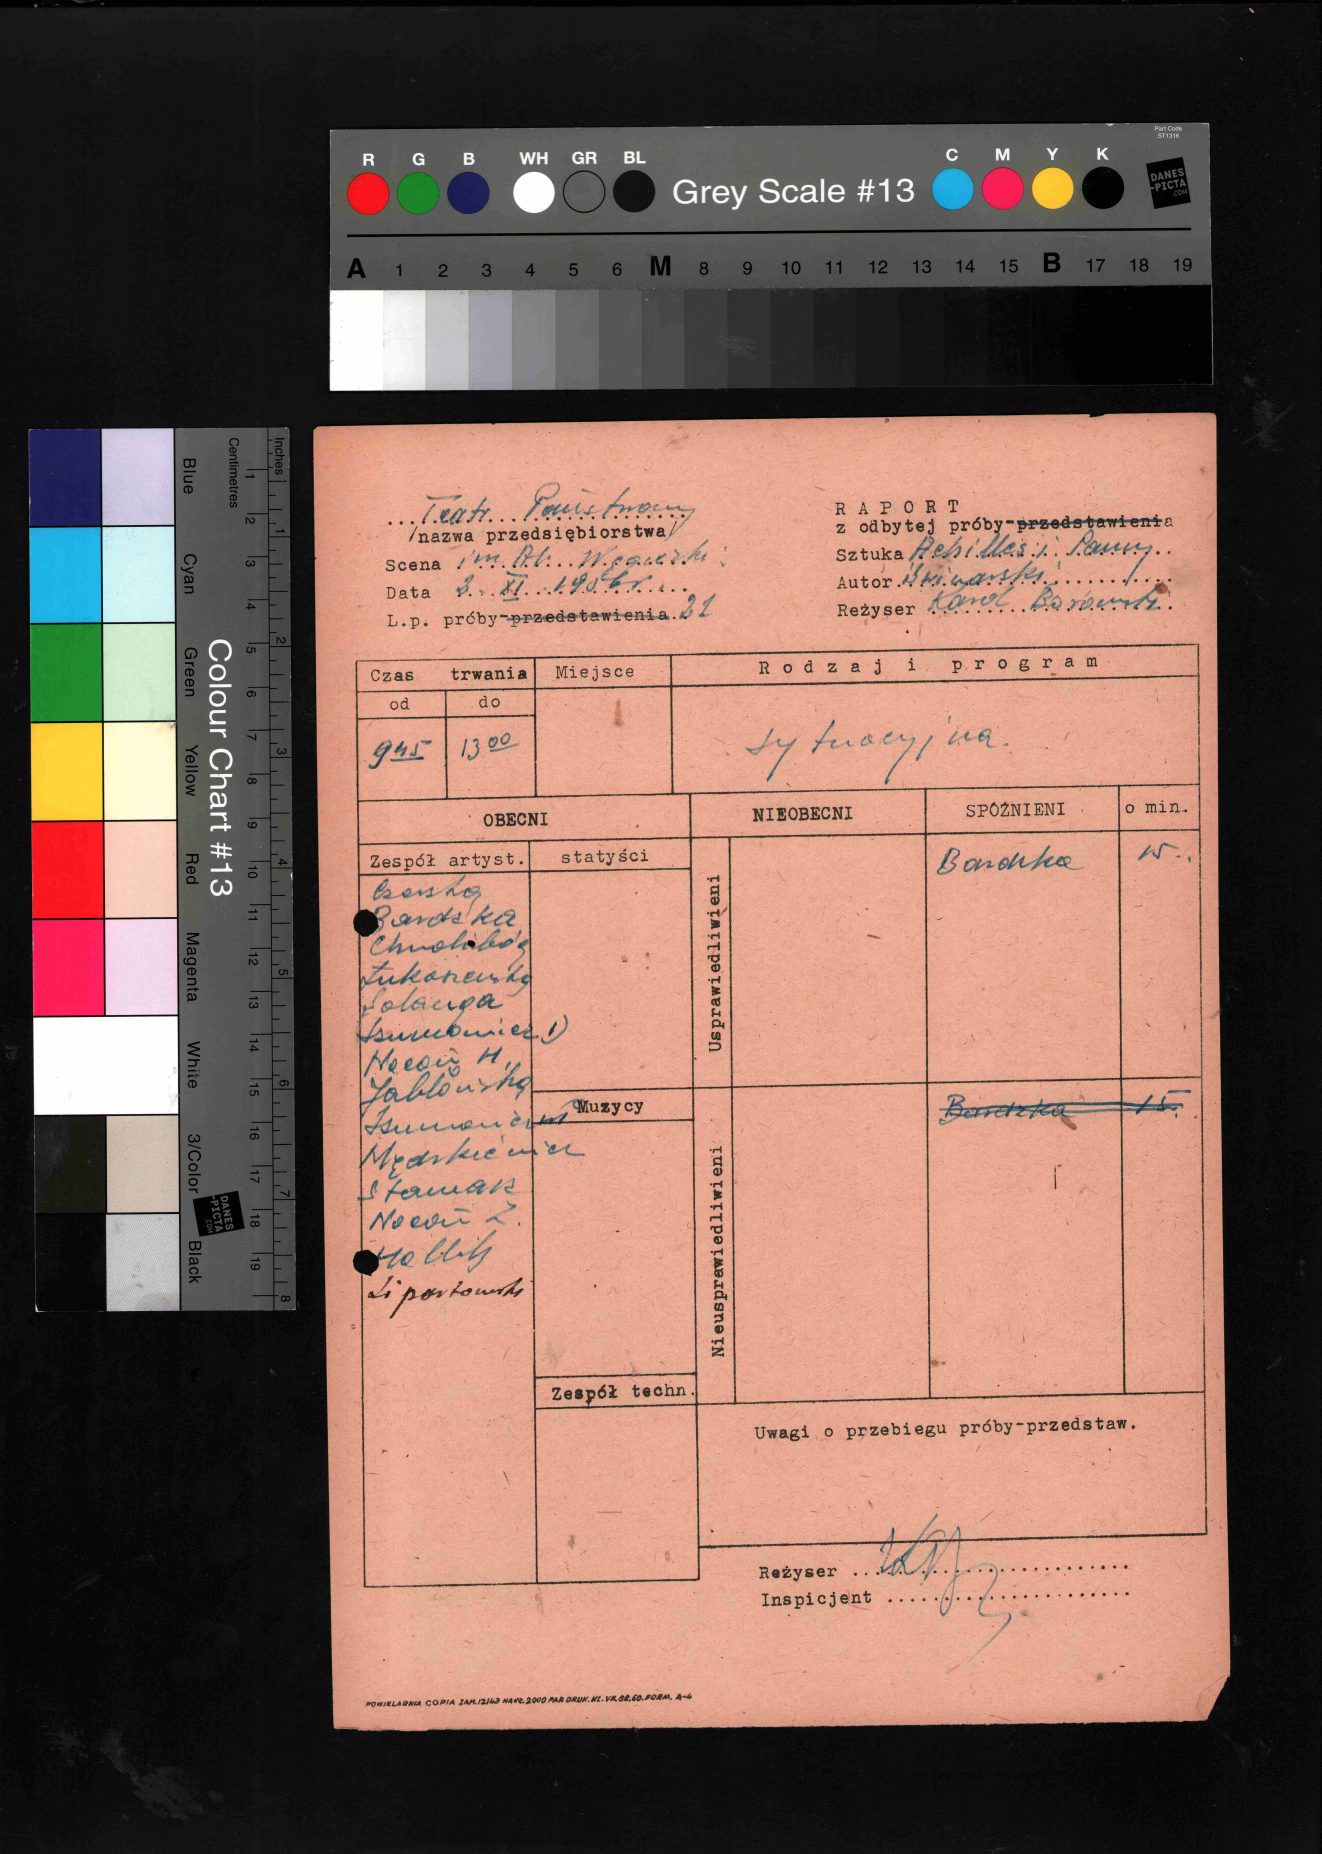 Part Code
ST1316
R G B WH GR BL
Grey Scale #13
C M Y K
DANES
-PICTA
.COM
A 1 2 3 4 5 6 M 8 9 10 11 12 13 14 15 B 17 18 19
Colour Chart #13
Blue
Cyan
Green
Yellow
Red
Magenta
White
3/Color
Black
Centimetres
1 2 3 4 5 6 7 8 9 10 11 12 13 14 15 16 17 18 19
Inches
1 2 3 4 5 6 7 8
DANES
-PICTA
.COM
Teatr Państwowy
/nazwa przedsiębiorstwa/
Scena im. Al. Węgierki
Data 3. XI. 1956 r.
L.p. próby-przedstawienia 21
RAPORT
z odbytej próby-przedstawienia
Sztuka Achilles i Panny
Autor Świnarski
Reżyser Karol Borowski
Czas trwania
od do
Miejsce
Rodzaj i program
9 45 13 00
sytuacyjna.
OBECNI
NIEOBECNI
SPÓŹNIENI
o min.
Zespół artyst.
statyści
Czerska
Bardzka
Chwalibóg
Łukaszewska
Solanga
Szumowicz 1)
Nocoń H.
Jabłońska
Mędrkiewicz
Nocoń Z.
Usprawiedliwieni
Bardzka 15.
Muzycy
Nieusprawiedliwieni
Bardzka 15.
Zespół techn.
Uwagi o przebiegu próby-przedstaw.
Reżyser
Inspicjent
POWIELARNIA COPIA ZAM. 12143 NAKŁ. 2000 PAP. DRUK. KL. VII. GR. 60. FORM. A-4